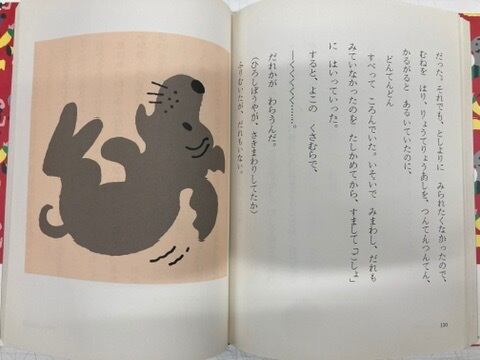 だった。それでも、としよりに みられたくなかったので、
むねを はり、りょうてりょうあしを、つんてんつんてん、
かるがると あるいていたのに、
どんてんどん
すべって ころんでいた。いそいで みまわし、だれも
みていなかったのを たしかめてから、すまして「ごしょ」
に はいっていった。
すると、よこの くさむらで、
―くくくくく……。
だれかが わらうんだ。
(ひろしぼうやが、さきまわりしてたか)
ふりむいたが、だれもいない。
130